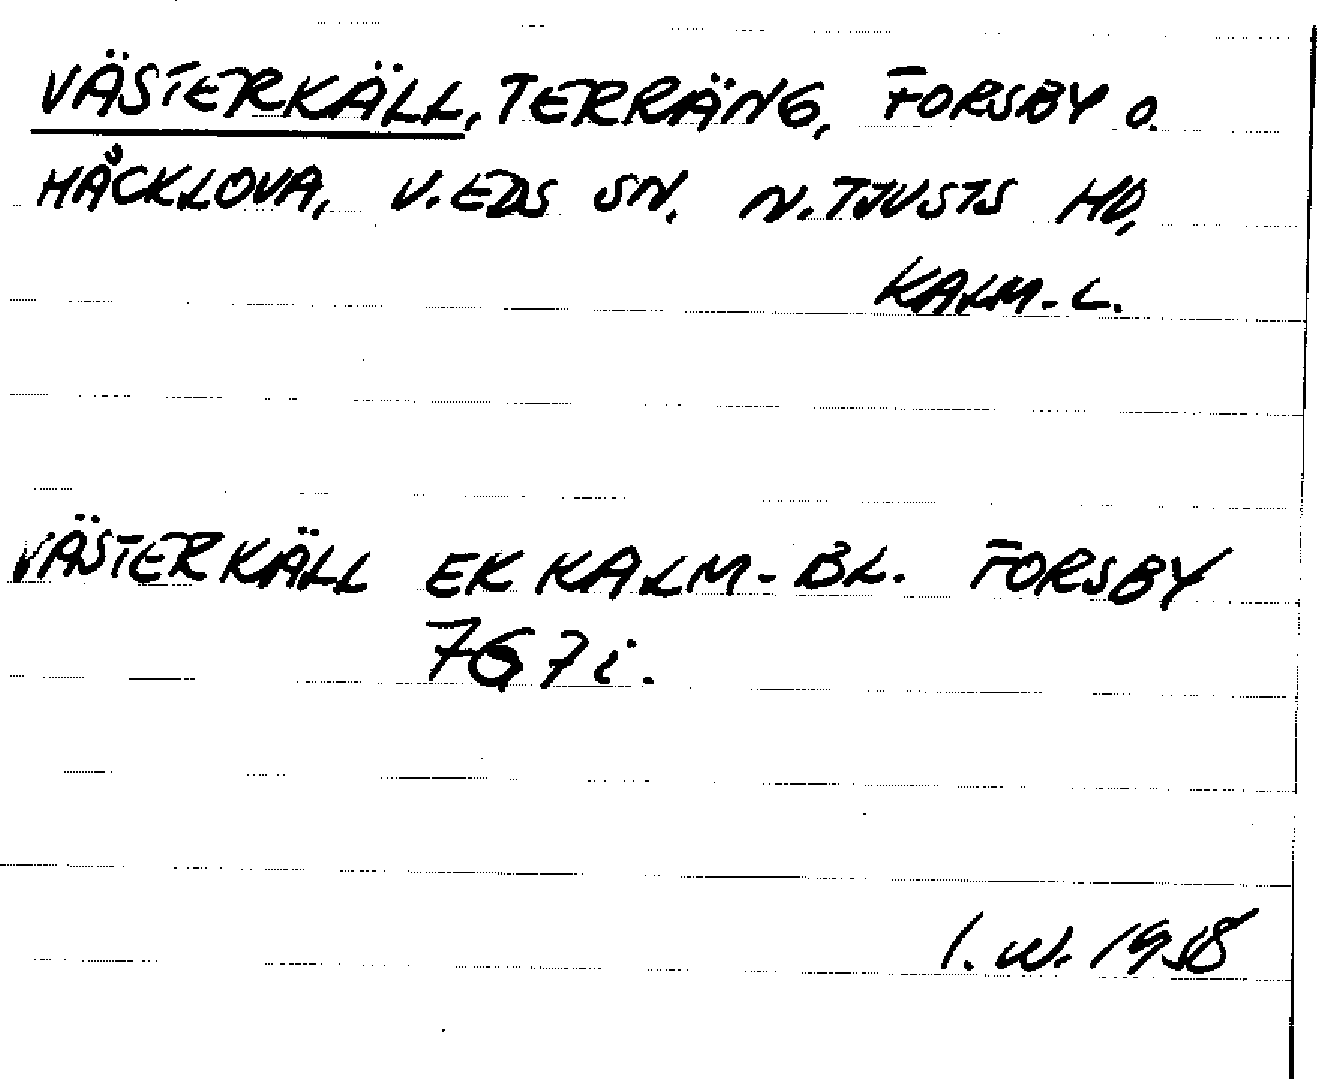 VÄSTERKÄLL, TERRÄNG, FORSBY o.
HÅCKLOVA, V. EDS SN. N. TJUSTS HD,
KALM-L.
VÄSTERKÄLL EK KALM-BL. FORSBY
767i.
I. W. 1958